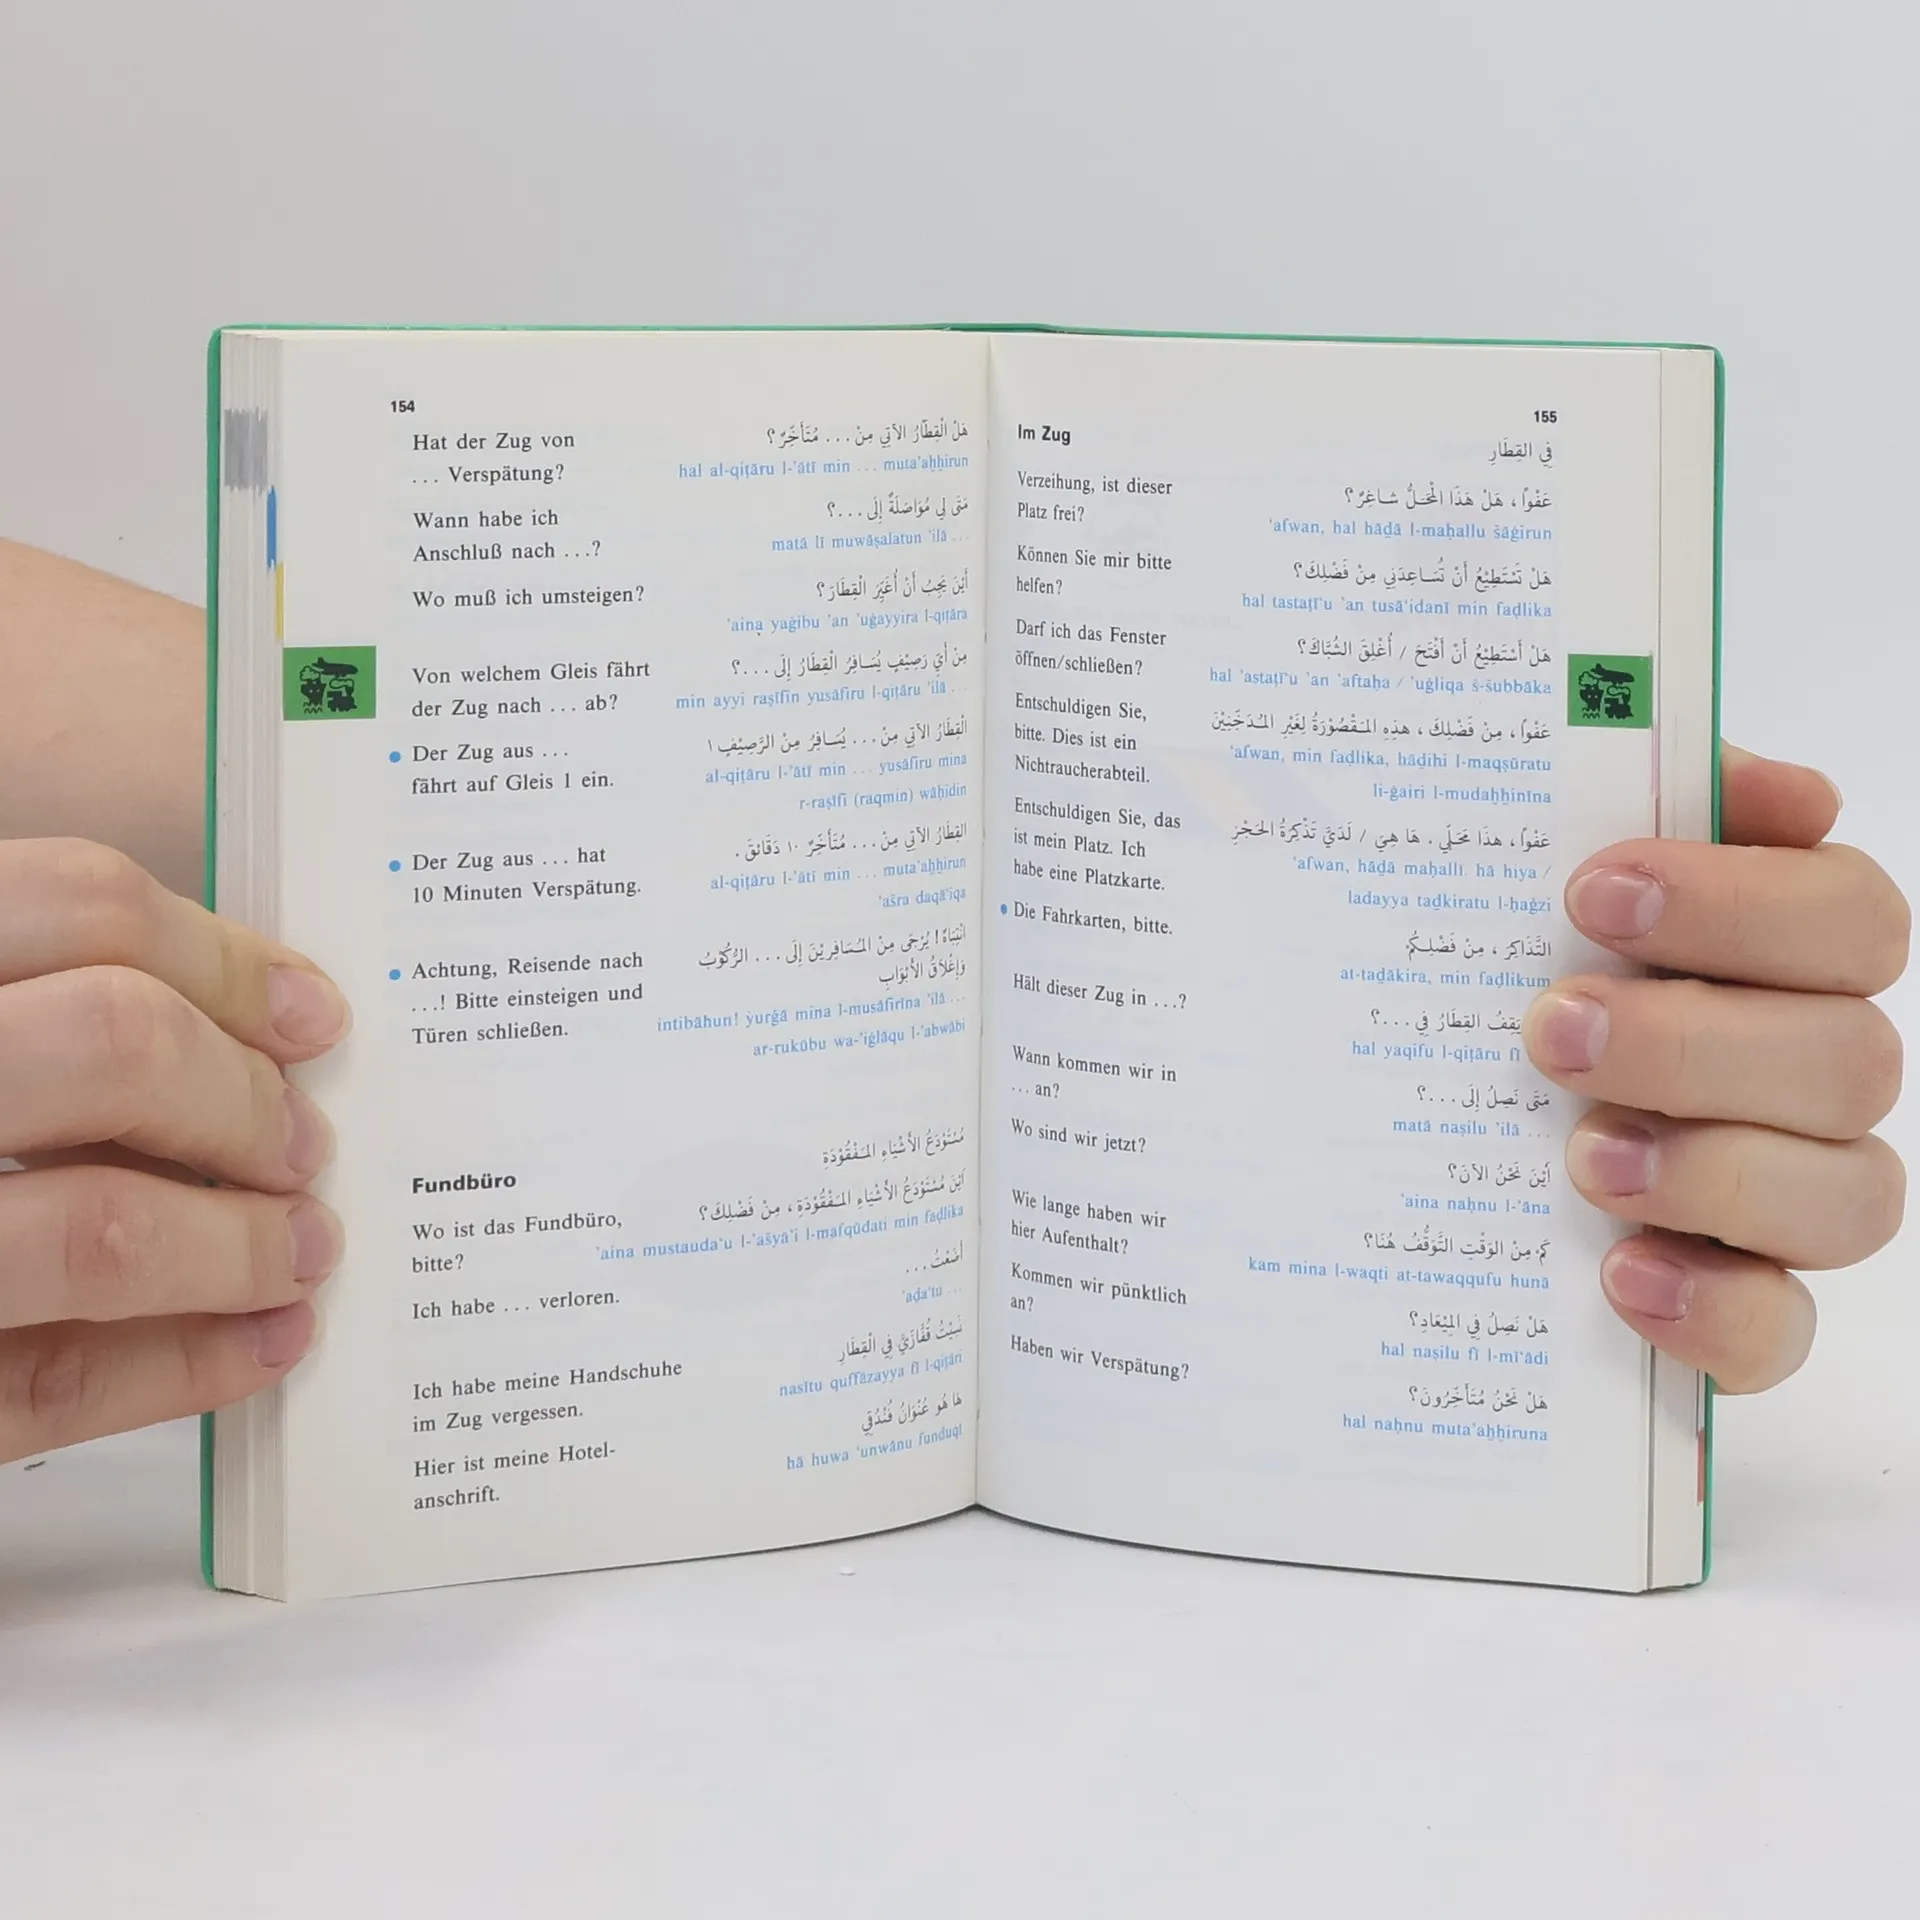 154
Hat der Zug von
... Verspätung?
هَلْ الْقِطَارُ الآتِي مِنْ... مُتَأَخِّرٌ؟
hal al-qiṭāru l-ʾātī min ... mutaʾaḫḫirun
Wann habe ich
Anschluß nach ...?
مَتَى لِي مُوَاصَلَةٌ إِلَى...؟
matā lī muwāṣalatun ʾilā ...
Wo muß ich umsteigen?
أَيْنَ يَجِبُ أَنْ أُغَيِّرَ الْقِطَارَ؟
ʾaina yaǧibu ʾan ʾuġayyira l-qiṭāra
Von welchem Gleis fährt
der Zug nach ... ab?
مِنْ أَيِّ رَصِيْفٍ يُسَافِرُ الْقِطَارُ إِلَى...؟
min ayyi raṣīfin yusāfiru l-qiṭāru ʾilā ...
Der Zug aus ...
fährt auf Gleis 1 ein.
الْقِطَارُ الآتِي مِنْ... يُسَافِرُ مِنْ الرَّصِيْفِ ١
al-qiṭāru l-ʾātī min ... yusāfiru mina
r-raṣīfi (raqmin) wāḥidin
Der Zug aus ... hat
10 Minuten Verspätung.
القِطَارُ الآتِي مِنْ... مُتَأَخِّرٌ ١٠ دَقَائقَ.
al-qiṭāru l-ʾātī min ... mutaʾaḫḫirun
ʿašra daqāʾiqa
Achtung, Reisende nach
...! Bitte einsteigen und
Türen schließen.
انْتِبَاهٌ! يُرْجَى مِنْ المُسَافِرِيْنَ إِلَى... الرُّكُوْبُ
وَإِغْلَاقُ الأَبْوَابِ
intibāhun! yurǧā mina l-musāfirīna ʾilā ...
ar-rukūbu wa-ʾiġlāqu l-ʾabwābi
Fundbüro
مُسْتَوْدَعُ الأَشْيَاءِ المَفْقُوْدَةِ
Wo ist das Fundbüro,
bitte?
أَيْنَ مُسْتَوْدَعُ الأَشْيَاءِ المَفْقُوْدَةِ، مِنْ فَضْلِكَ؟
ʾaina mustaudaʿu l-ʾašyāʾi l-mafqūdati min faḍlika
Ich habe ... verloren.
أَضَعْتُ...
ʾaḍaʿtu ...
Ich habe meine Handschuhe
im Zug vergessen.
نَسِيْتُ قُفَّازَيَّ فِي الْقِطَارِ
nasītu quffāzayya fī l-qiṭāri
Hier ist meine Hotel-
anschrift.
هَا هُو عُنْوَانُ فُنْدُقِي
hā huwa ʿunwānu funduqī
155
Im Zug
فِي القِطَارِ
Verzeihung, ist dieser
Platz frei?
عَفْواً، هَلْ هَذَا الْمَحَلُّ شاغِرٌ؟
ʿafwan, hal hāḏā l-maḥallu šāġirun
Können Sie mir bitte
helfen?
هَلْ تَسْتَطِيْعُ أَنْ تُسَاعِدَنِي مِنْ فَضْلِكَ؟
hal tastaṭīʿu ʾan tusāʿidanī min faḍlika
Darf ich das Fenster
öffnen/schließen?
هَلْ أَسْتَطِيْعُ أَنْ أَفْتَحَ / أُغْلِقَ الشُّبَّاكَ؟
hal ʾastaṭīʿu ʾan ʾaftaḥa / ʾuġliqa š-šubbāka
Entschuldigen Sie,
bitte. Dies ist ein
Nichtraucherabteil.
عَفْواً، مِنْ فَضْلِكَ، هذِهِ المَقْصُوْرَةُ لِغَيْرِ المُدَخِّنِيْنَ
ʿafwan, min faḍlika, hāḏihi l-maqṣūratu
li-ġairi l-mudaḫḫinīna
Entschuldigen Sie, das
ist mein Platz. Ich
habe eine Platzkarte.
عَفْواً، هذَا مَحَلِّي. هَا هِيَ / لَدَيَّ تَذْكِرَةُ الحَجْزِ
ʿafwan, hāḏā maḥallī. hā hiya /
ladayya taḏkiratu l-ḥaǧzi
Die Fahrkarten, bitte.
التَّذَاكِرَ، مِنْ فَضْلِكُمْ
at-taḏākira, min faḍlikum
Hält dieser Zug in ...?
يَقِفُ القِطَارُ فِي...؟
hal yaqifu l-qiṭāru fī
Wann kommen wir in
... an?
مَتَى نَصِلُ إِلَى...؟
matā naṣilu ʾilā ...
Wo sind wir jetzt?
أَيْنَ نَحْنُ الآنَ؟
ʾaina naḥnu l-ʾāna
Wie lange haben wir
hier Aufenthalt?
كَمْ مِنْ الوَقْتِ التَّوَقُّفُ هُنَا؟
kam mina l-waqti at-tawaqqufu hunā
Kommen wir pünktlich
an?
هَلْ نَصِلُ فِي المِيْعَادِ؟
hal naṣilu fī l-mīʿādi
Haben wir Verspätung?
هَلْ نَحْنُ مُتَأَخِّرُونَ؟
hal naḥnu mutaʾaḫḫiruna